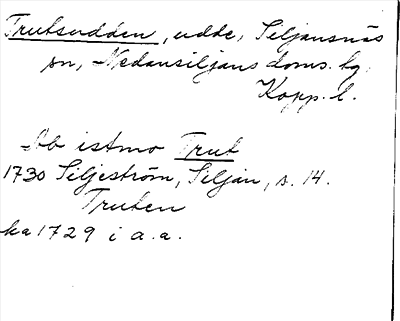 Trutsudden, udde, Siljansnäs
sn, Nedansiljans doms. hg,
Kopp. l.
Ab istmo Trut
1730 Siljeström, Siljan, s. 14.
Truten
ka 1729 i a.a.